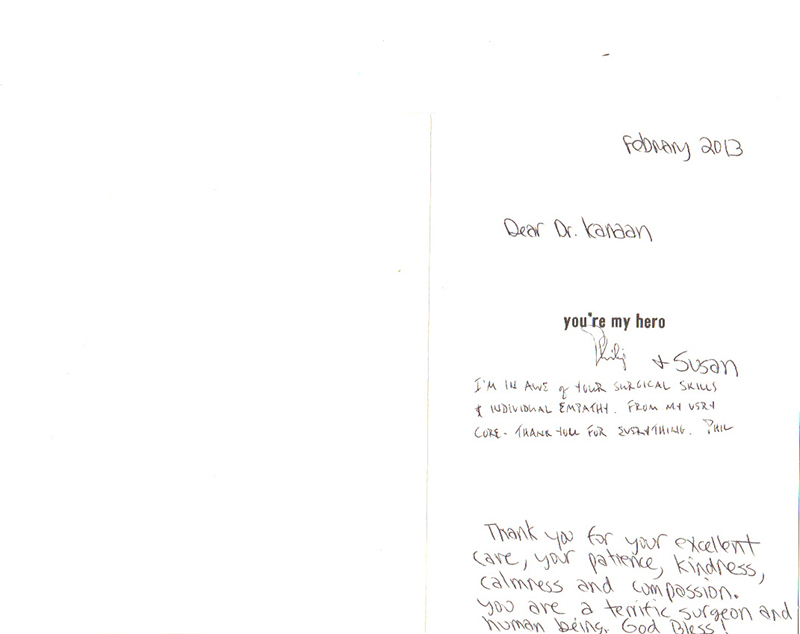 February 2013
Dear Dr. Kanaan
you're my hero
Philip + Susan
I'M IN AWE of YOUR SURGICAL SKILLS
& INDIVIDUAL EMPATHY. FROM MY VERY
CORE - THANK YOU FOR EVERYTHING. PHIL
Thank you for your excellent
care, your patience, kindness,
calmness and compassion.
You are a terrific surgeon and
human being. God Bless!